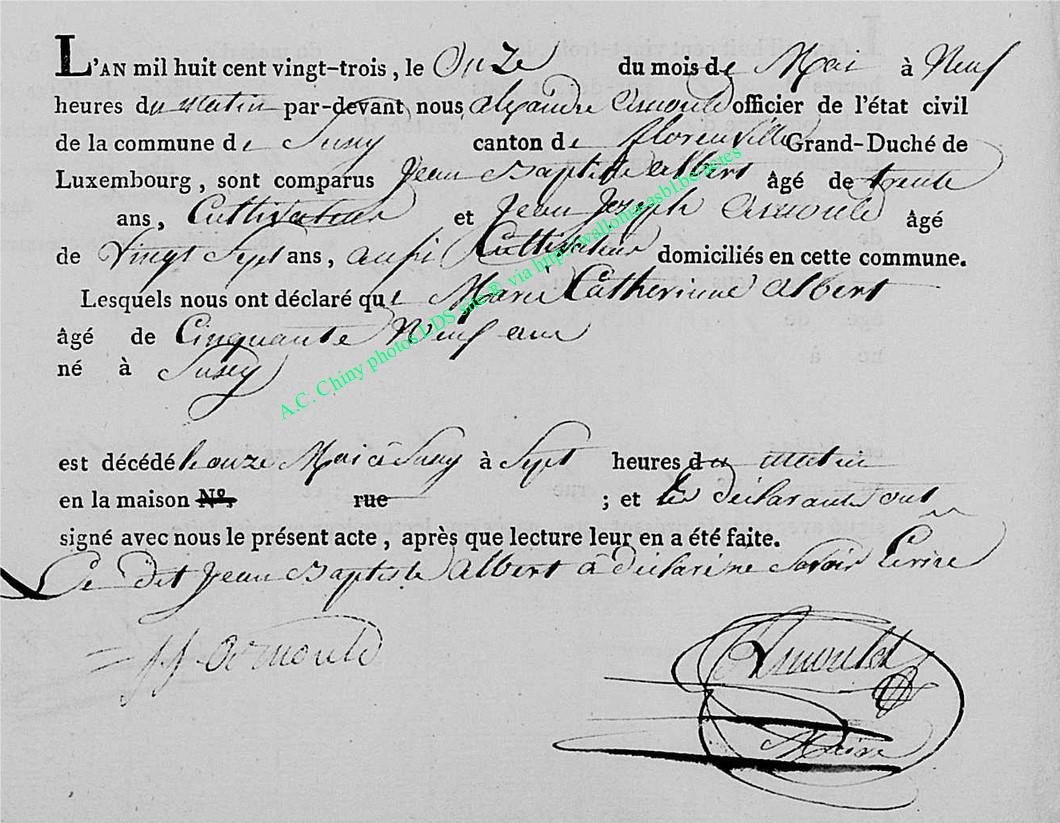 L'AN mil huit cent vingt-trois, le Onze du mois de Mai à Neuf
heures du matin par-devant nous alexandre Arnould officier de l'état civil
de la commune de Suxy canton de florenville Grand-Duché de
Luxembourg, sont comparus Jean Baptiste albert âgé de trente
ans, Cultivateur et Jean Joseph Arnould âgé
de Vingt Sept ans, aussi Cultivateur domiciliés en cette commune.
Lesquels nous ont déclaré que Marie Catherinne albert
âgé de Cinquante Neuf ans
né à Suxy
est décédé le onze Mai à Suxy à Sept heures du matin
en la maison N°. rue ; et les déclarants ont
signé avec nous le présent acte, après que lecture leur en a été faite.
Ce dit Jean Baptiste albert à déclaré ne Savoir Ecrire
JJ Arnould
Arnould
Maire
A.C. Chiny photos LDS site @ via http://wallonia.asbl.be/actes